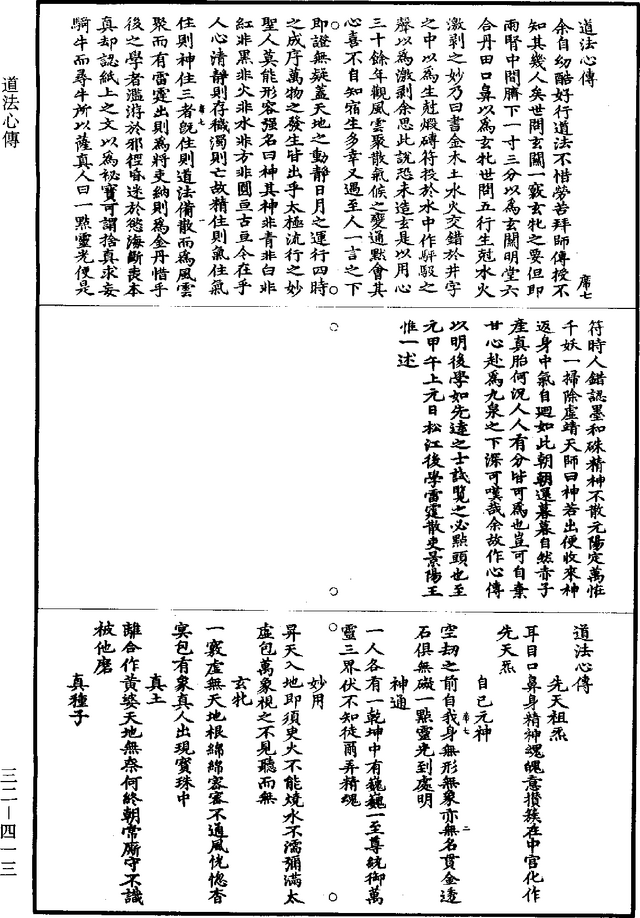 道法心傳
三二—四一三
道法心傳
席七
余自幼酷好行道法不惜勞苦拜師傳授不
知其幾人矣世間玄關一竅玄牝之要但即
兩腎中間臍下一寸三分以為玄關明堂六
合丹田口鼻以為玄牝世間五行生尅水火
激剥之妙乃曰書金木土水火交錯於井字
之中以為生尅煅磚符投於水中作
聲以為激剥余思此說恐未造玄是以用心
三十餘年觀風雲聚散氣候之變通默會其
心喜不自知宿生多幸又遇至人一言之下
即證無疑蓋天地之動靜日月之運行四時
之成序萬物之發生皆出乎太極流行之妙
聖人莫能形容强名曰神其神非青非白非
紅非黑非火非水非方非圓亘古亘今在乎
人心清靜則存穢濁則亡故精住則氣住氣
住則神住三者旣住則道法備散而為風雲
聚而有雷霆出則為將吏納則為金丹惜乎
後之學者濫游於邪徑昏迷於慾海斷喪本
真却認紙上之文以為秘寶可謂捨真求妄
騎牛而尋牛所以薩真人曰一點靈光便是
符時人錯認墨和硃精神不散元陽定萬怪
千妖一掃除虛靖天師曰神若出便收來神
返身中氣自迴如此朝朝還暮暮自然赤子
產真胎何況人人有分皆可為也豈可自棄
甘心赴為九泉之下深可嘆哉余故作心傳
以明後學如先達之士試覽之必點頭也至
元甲午上元日松江後學雷霆散吏景陽王
惟一述
道法心傳
先天祖炁
耳目口鼻身精神魂魄意攢簇在中宫化作
先天炁
自己元神
空劫之前自我身無形無象亦無名貫金透
石俱無礙一點靈光到處明
神通
一人各有一乾坤中有巍巍一至尊統御萬
靈三界伏不知徒爾弄精魂
妙用
昇天入地即須臾火不能燒水不濡彌滿太
虛包萬象視之不見聽而無
玄牝
一竅虛無天地根綿綿密密不通風恍惚杳
冥包有象真人出現寶珠中
真土
離合作黄婆天地無奈何終朝常廝守不識
被他磨
真種子